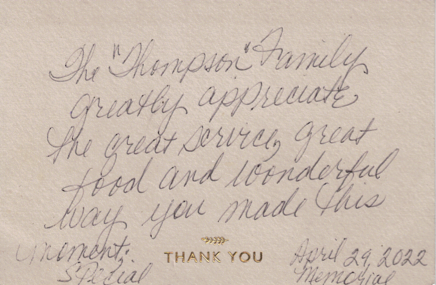 The "Thompson" Family
greatly appreciate
the great service, great
food and wonderful
way you made this
moment.
Special
THANK YOU
April 29, 2022
Memorial